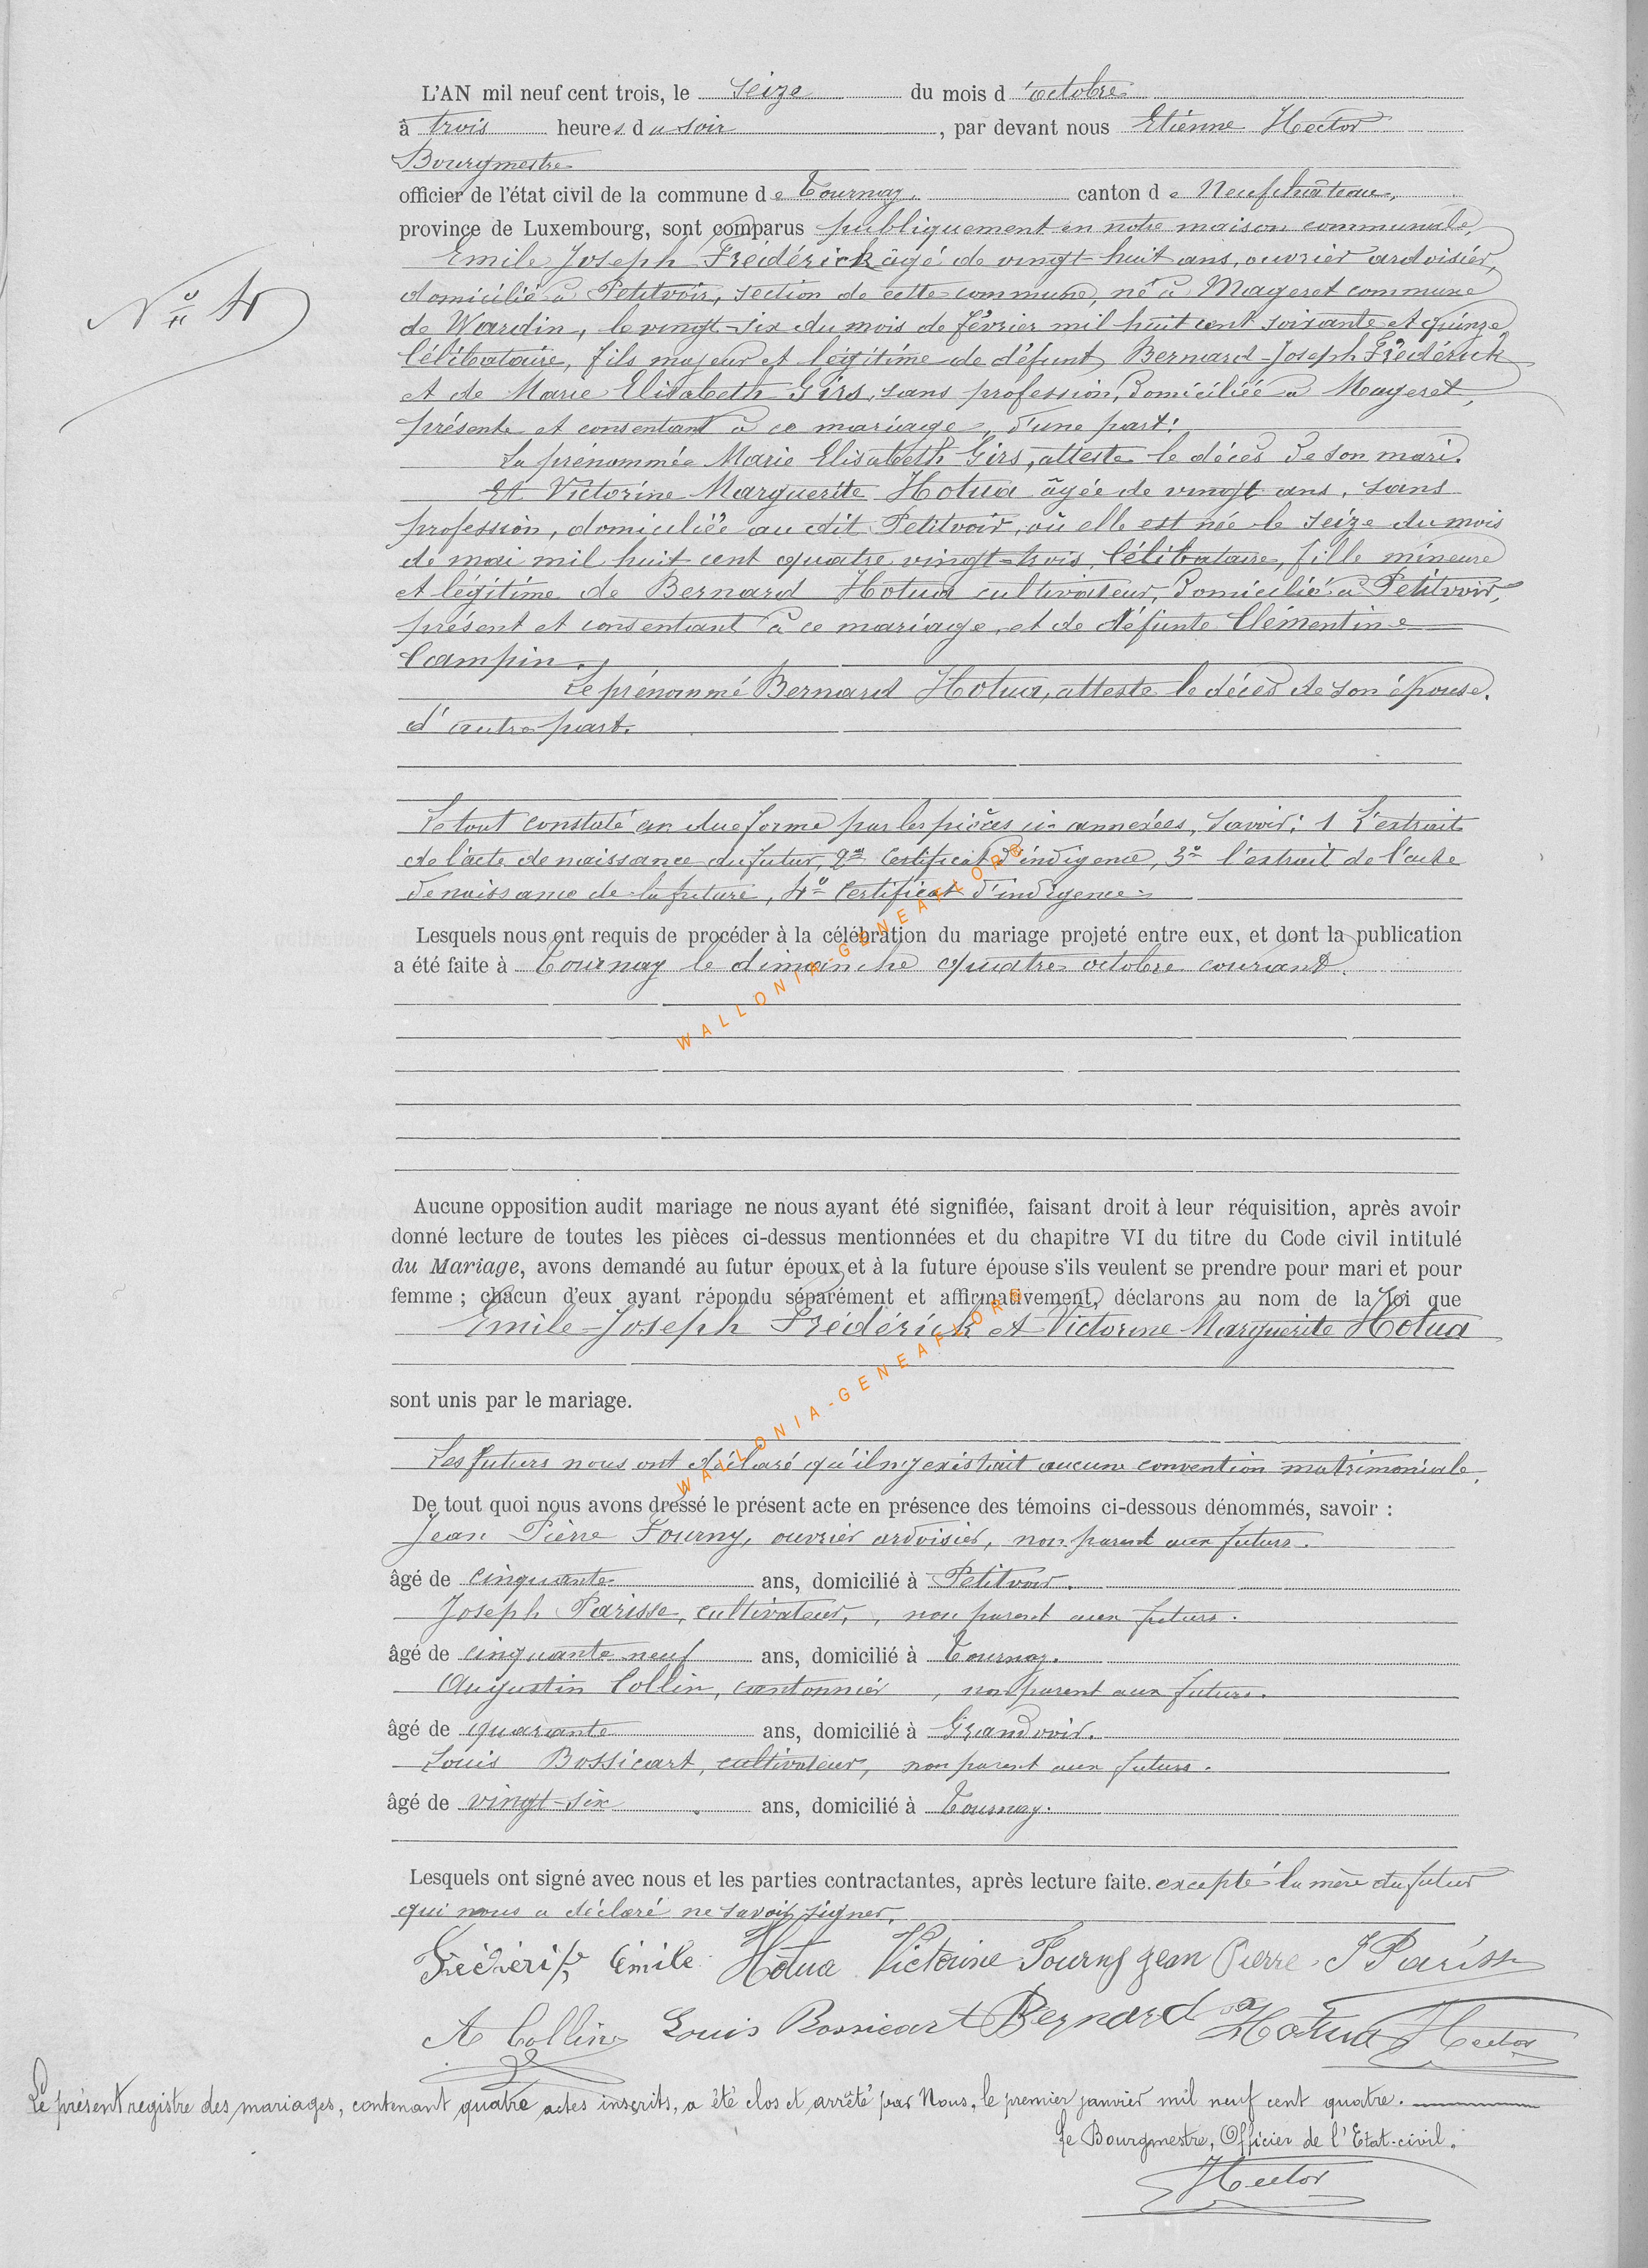 L'AN mil neuf cent trois, le seize du mois d'octobre
à trois heures du soir, par devant nous Etienne Hector
Bourgmestre
officier de l'état civil de la commune de Tournay, canton de Neufchâteau,
province de Luxembourg, sont comparus publiquement en notre maison communale,
Emile Joseph Frédérick âgé de vingt-huit ans, ouvrier ardoisier,
N° 4
domicilié à Petitvoir, section de cette commune, né à Mageret commune
de Wardin, le vingt-six du mois de février mil huit cent soixante et quinze,
Célibataire, fils majeur et légitime de défunt Bernard-Joseph Frédérick
et de Marie Elisabeth Girs, sans profession, domiciliée à Mageret,
présente et consentant à ce mariage, d'une part:
La prénommée Marie Elisabeth Girs, atteste le décès de son mari.
Et Victorine Marguerite Hotua âgée de vingt ans, sans
profession, domiciliée au dit Petitvoir, où elle est née le seize du mois
de mai mil huit cent quatre vingt-trois, Célibataire, fille mineure
et légitime de Bernard Hotua cultivateur, domicilié à Petitvoir,
présent et consentant à ce mariage, et de défunte Clémentine
Campin.
Le prénommé Bernard Hotua, atteste le décès de son épouse.
d'autre part.
Le tout constaté en due forme par les pièces ci-annexées, savoir: 1 L'extrait
de l'acte de naissance du futur, 2° Certificat d'indigence, 3° l'extrait de l'acte
de naissance de la future, 4° Certificat d'indigence
Lesquels nous ont requis de procéder à la célébration du mariage projeté entre eux, et dont la publication
a été faite à Tournay le dimanche quatre octobre courant.
WALLONIA-GENEAFLORE
Aucune opposition audit mariage ne nous ayant été signifiée, faisant droit à leur réquisition, après avoir
donné lecture de toutes les pièces ci-dessus mentionnées et du chapitre VI du titre du Code civil intitulé
du Mariage, avons demandé au futur époux et à la future épouse s'ils veulent se prendre pour mari et pour
femme ; chacun d'eux ayant répondu séparément et affirmativement, déclarons au nom de la loi que
Emile-Joseph Frédérick et Victorine Marguerite Hotua
sont unis par le mariage.
WALLONIA-GENEAFLORE
Les futurs nous ont déclaré qu'il n'y existait aucune convention matrimoniale.
De tout quoi nous avons dressé le présent acte en présence des témoins ci-dessous dénommés, savoir :
Jean Pierre Fourny, ouvrier ardoisier, non parent aux futurs.
âgé de cinquante ans, domicilié à Petitvoir.
Joseph Parisse, cultivateur, , non parent aux futurs.
âgé de cinquante neuf ans, domicilié à Tournay.
Augustin Collin, cantonnier , non parent aux futurs.
âgé de quarante ans, domicilié à Grandvoir.
Louis Bossicart, cultivateur, non parent aux futurs.
âgé de vingt-six ans, domicilié à Tournay.
Lesquels ont signé avec nous et les parties contractantes, après lecture faite. excepté la mère du futur
qui nous a déclaré ne savoir signer.
Frédérik Emile Hotua Victorine Fourny Jean Pierre J Parisse
A Collin Louis Bossicart Bernard Hotua Hector
Le présent registre des mariages, contenant quatre actes inscrits, a été clos et arrêté par Nous, le premier janvier mil neuf cent quatre.
Le Bourgmestre, Officier de l'Etat-civil.
Hector